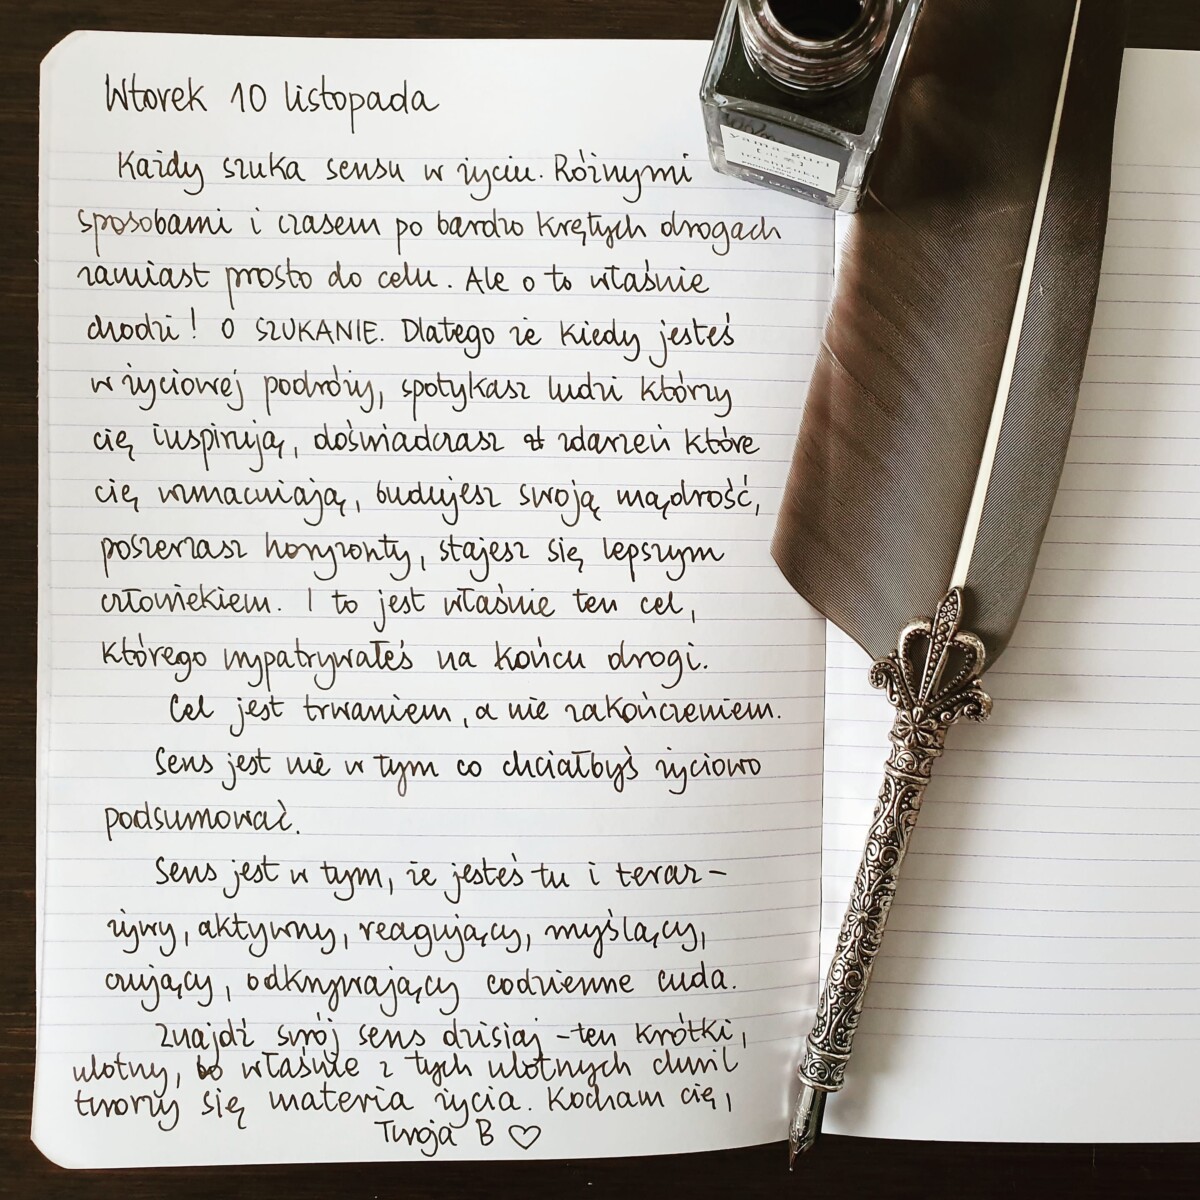 Wtorek 10 listopada
Każdy szuka sensu w życiu. Różnymi
sposobami i czasem po bardzo krętych drogach
zamiast prosto do celu. Ale o to właśnie
chodzi! O SZUKANIE. Dlatego że kiedy jesteś
w życiowej podróży, spotykasz ludzi którzy
cię inspirują, doświadczasz zdarzeń które
cię wzmacniają, budujesz swoją mądrość,
poszerzasz horyzonty, stajesz się lepszym
człowiekiem. I to jest właśnie ten cel,
którego wypatrywałeś na końcu drogi.
Cel jest trwaniem, a nie zakończeniem.
Sens jest nie w tym co chciałbyś życiowo
podsumować.
Sens jest w tym, że jesteś tu i teraz –
żywy, aktywny, reagujący, myślący,
czujący, odkrywający codzienne cuda.
Znajdź swój sens dzisiaj – ten krótki,
ulotny, bo właśnie z tych ulotnych chwil
tworzy się materia życia. Kocham cię,
Twoja B ♡
yama-guri